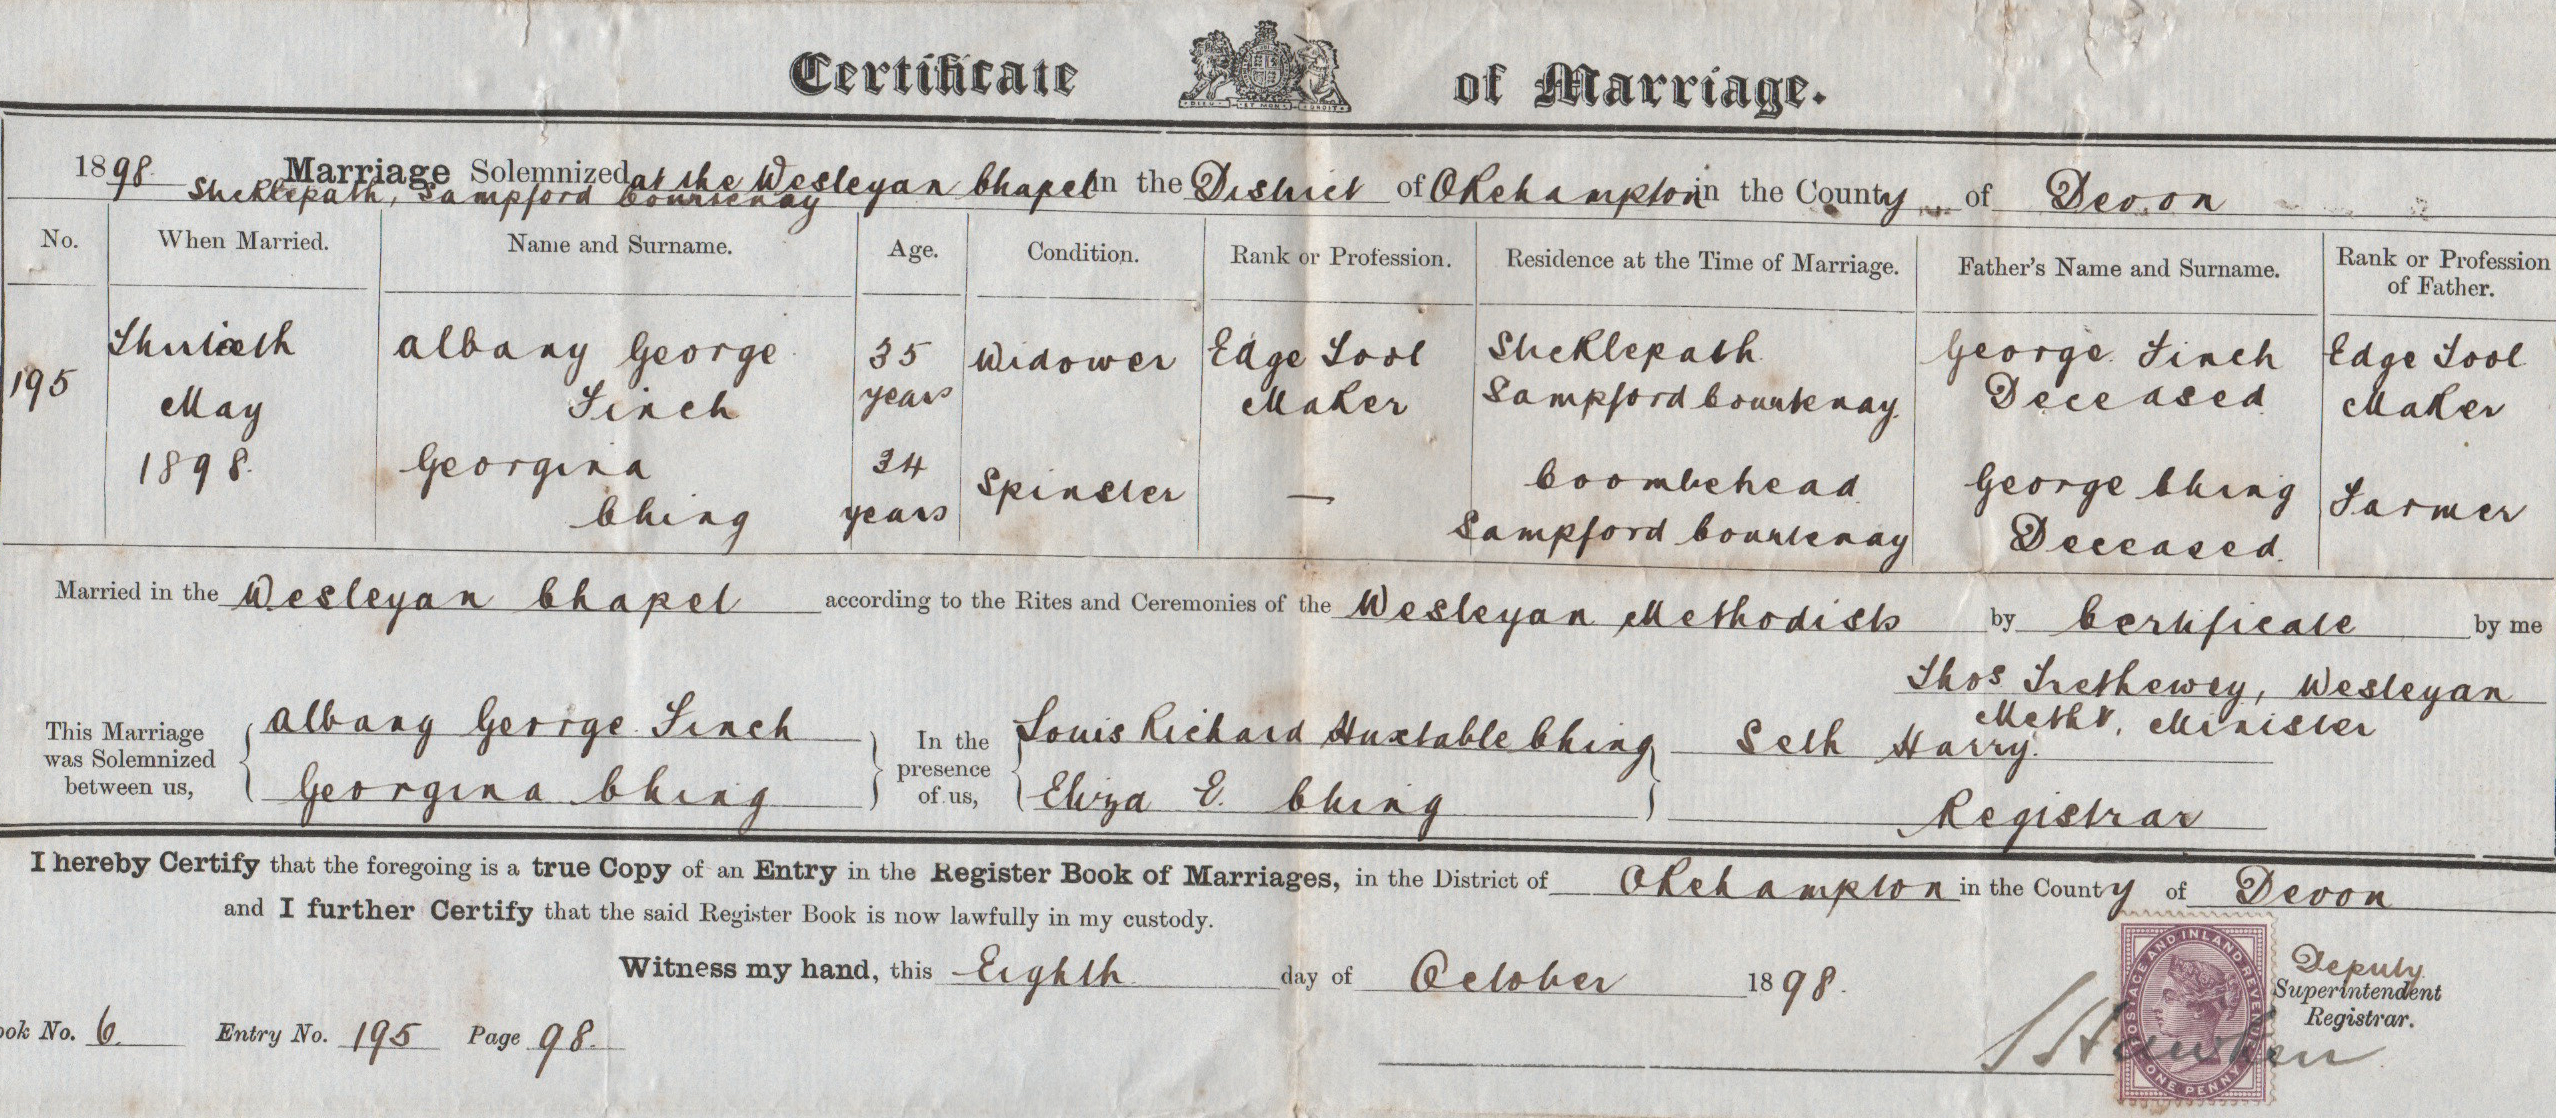 Certificate of Marriage.
DIEU ET MON DROIT
1898 Marriage Solemnized at the Wesleyan Chapel in the District of Okehampton in the County of Devon
Sticklepath, Sampford Courtenay
No. When Married. Name and Surname. Age. Condition. Rank or Profession. Residence at the Time of Marriage. Father's Name and Surname. Rank or Profession of Father.
195 Thirtieth May 1898. Albany George Finch 35 years Widower Edge Tool Maker Sticklepath Sampford Courtenay George Finch Deceased Edge Tool Maker
Georgina Ching 34 years Spinster — Coombehead Sampford Courtenay George Ching Deceased. Farmer
Married in the Wesleyan Chapel according to the Rites and Ceremonies of the Wesleyan Methodists by Certificate by me
Thos Trethewey, Wesleyan
Meth. Minister
This Marriage was Solemnized between us, Albany George Finch
Georgina Ching
In the presence of us, Louis Richard Huxtable Ching
Eliza E. Ching
Seth Harry.
Registrar
I hereby Certify that the foregoing is a true Copy of an Entry in the Register Book of Marriages, in the District of Okehampton in the County of Devon
and I further Certify that the said Register Book is now lawfully in my custody.
Witness my hand, this Eighth day of October 1898.
Deputy
Superintendent
Registrar.
ook No. 6. Entry No. 195 Page 98.
POSTAGE AND INLAND REVENUE
ONE PENNY